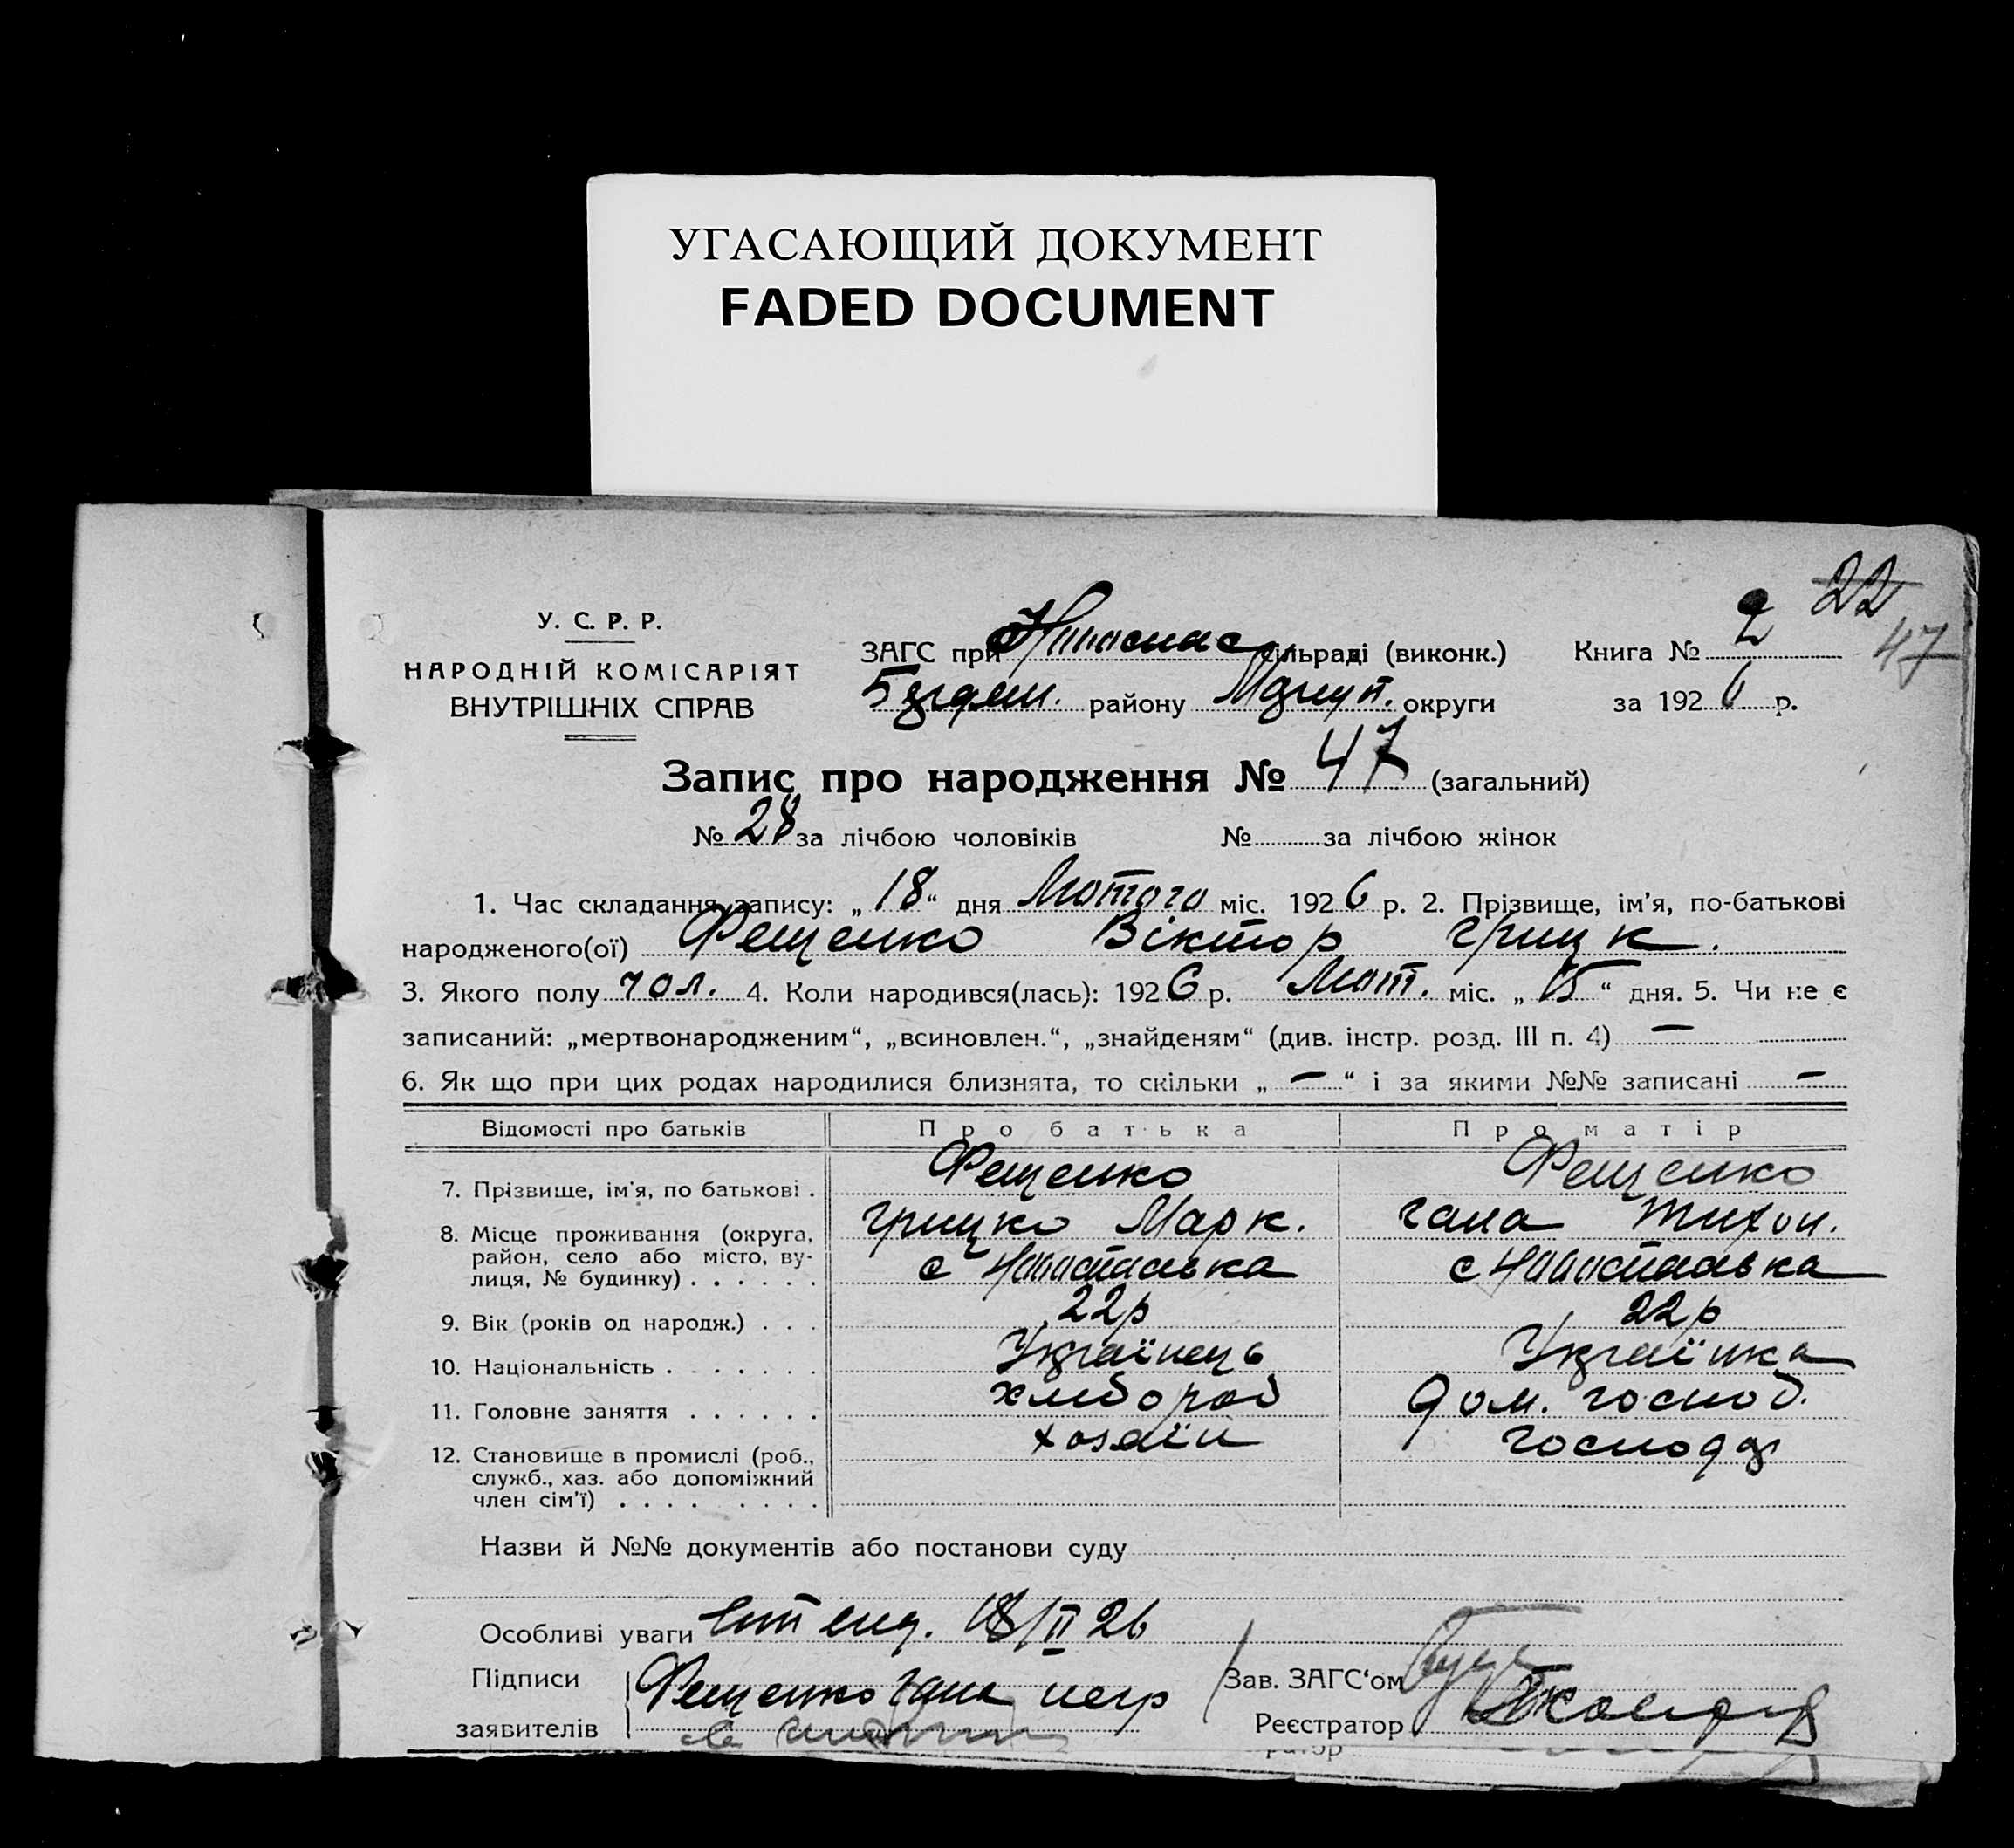 УГАСАЮЩИЙ ДОКУМЕНТ
FADED DOCUMENT
22
47
У. С. Р. Р.
НАРОДНІЙ КОМІСАРІЯТ
ВНУТРІШНІХ СПРАВ
ЗАГС при сільраді (виконк.) Книга № 2
району округи за 1926 р.
Запис про народження № 47 (загальний)
№ 28 за лічбою чоловіків № за лічбою жінок
1. Час складання запису: „18“ дня Лютого міс. 1926 р. 2. Прізвище, ім'я, по-батькові
народженого(ої) Фещенко Віктор Грицк.
3. Якого полу чол. 4. Коли народився(лась): 1926 р. Лют. міс. „15“ дня. 5. Чи не є
записаний: „мертвонародженим“, „всиновлен.“, „знайденям“ (див. інстр. розд. III п. 4) —
6. Як що при цих родах народилися близнята, то скільки „—“ і за якими №№ записані —
Відомості про батьків Про батька Про матір
7. Прізвище, ім'я, по батькові . Фещенко Фещенко
Грицко Марк. Гана Тихон.
8. Місце проживання (округа, район, село або місто, вулиця, № будинку) . . . . . . с с
9. Вік (років од народж.) . . . 22р 22р
10. Національність . . . . . . . Українець Українка
11. Головне заняття . . . . . . хлібороб дом. господ.
12. Становище в промислі (роб., служб., хаз. або допоміжний член сім'ї) . . . . . . . . хозаїн господар
Назви й №№ документів або постанови суду
Особливі уваги 18/II 26
Підписи Фещенко Гана негр Зав. ЗАГС‘ом
заявителів Реєстратор